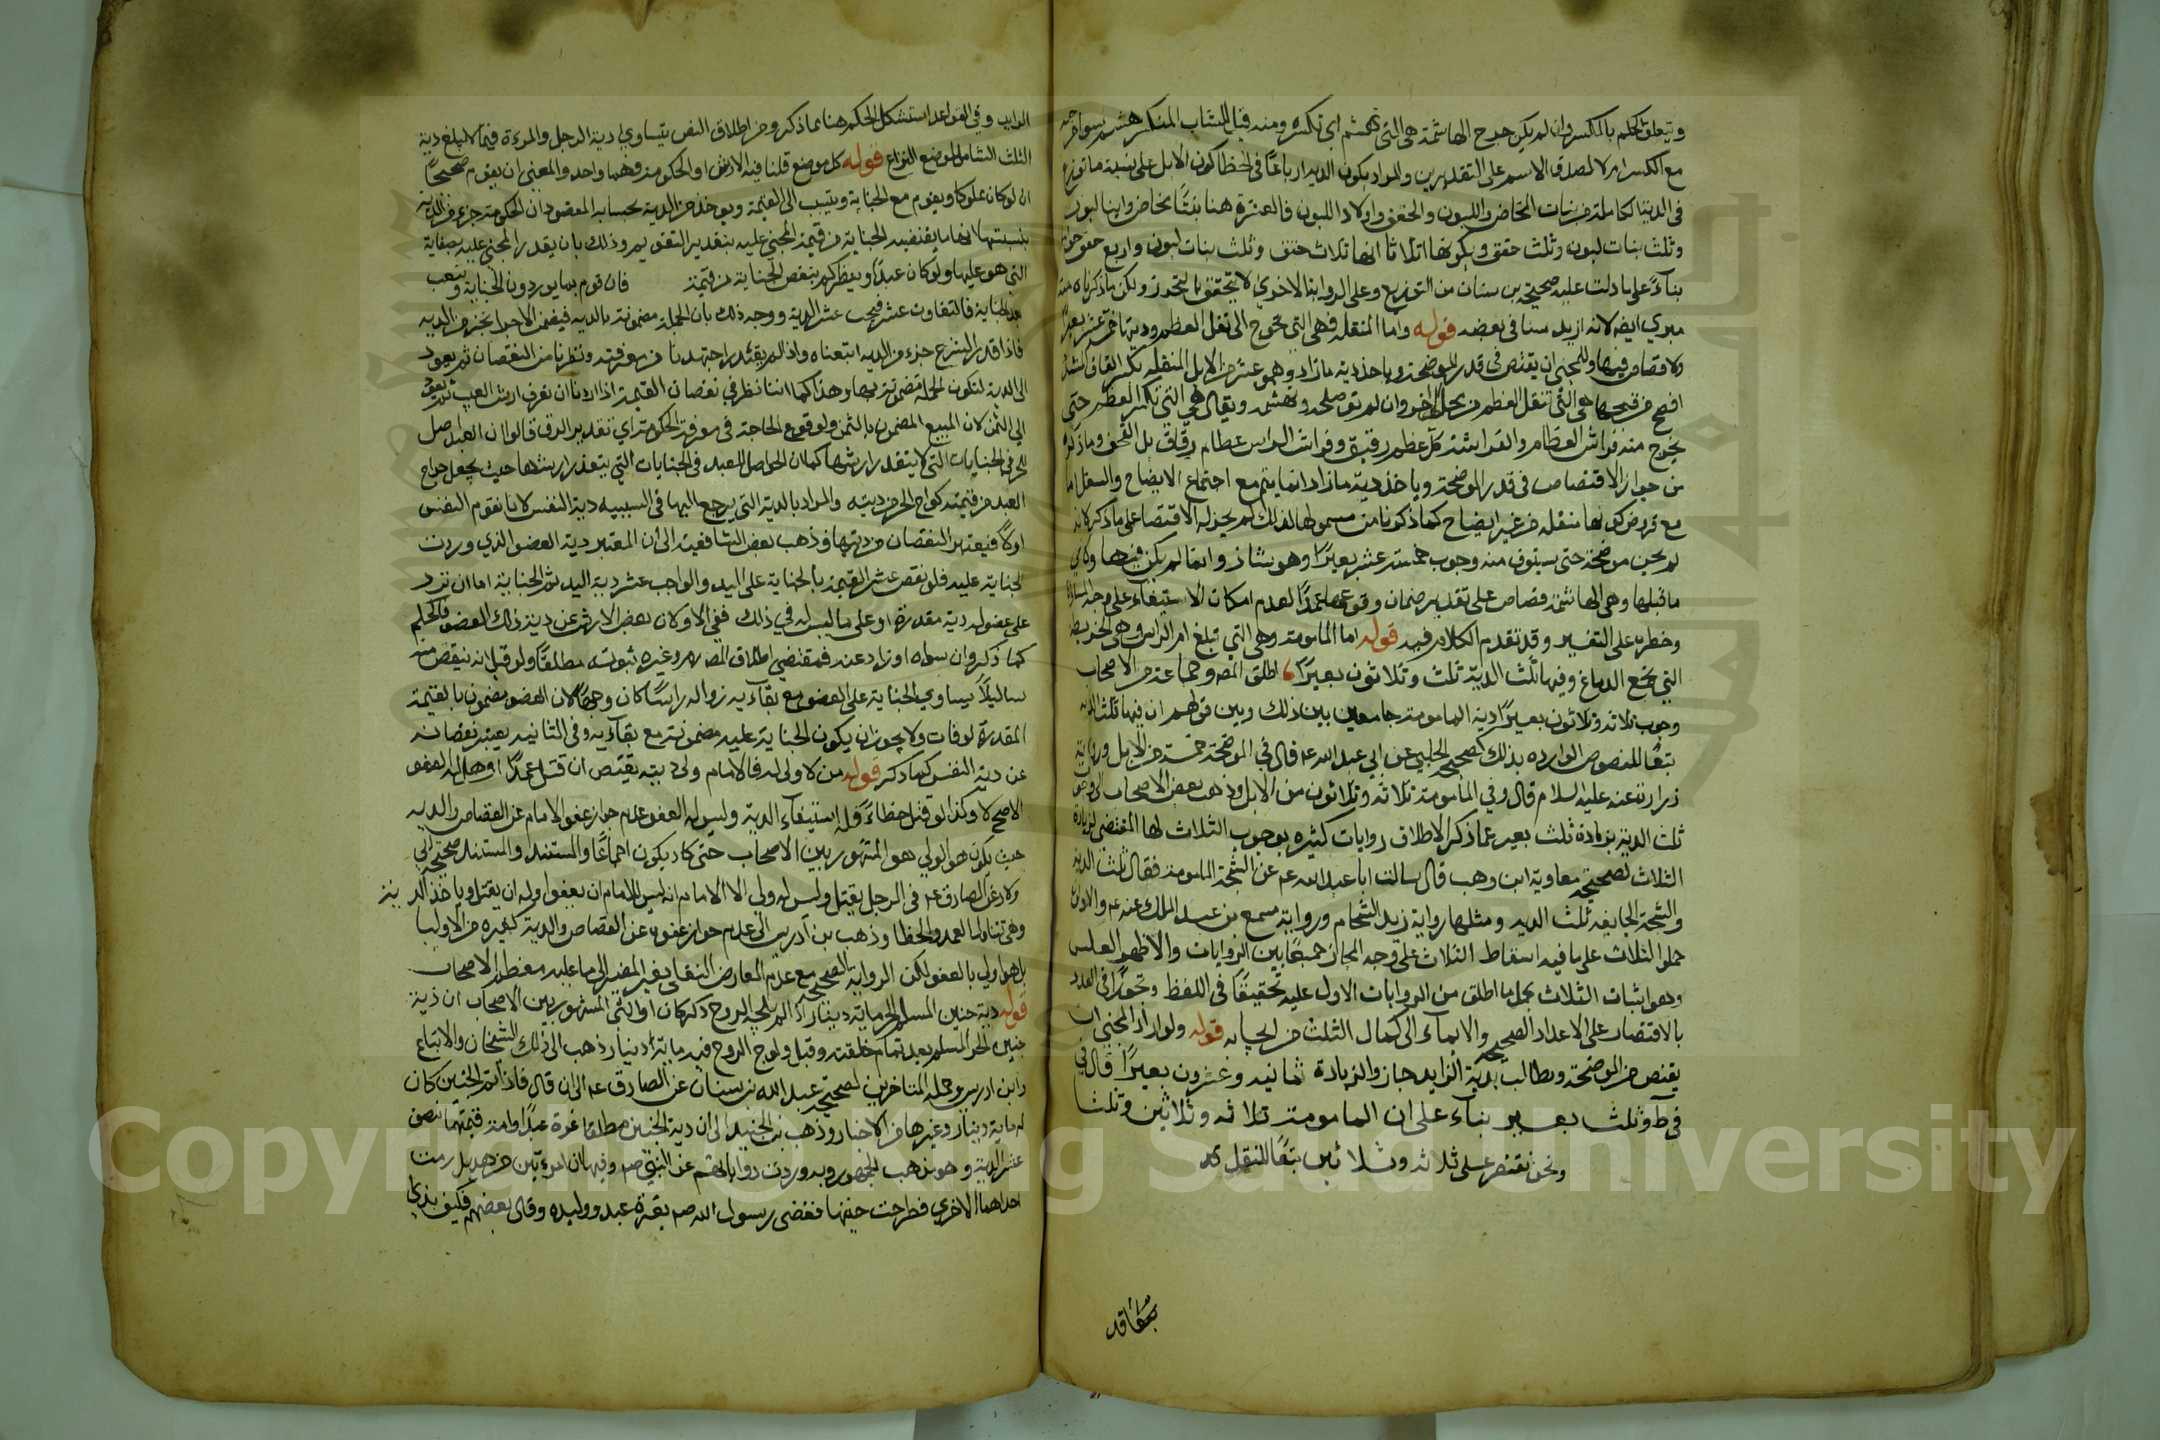 ويتعلق الحكم بالكسر وان لم يكن جرح الهاشمة هي التي تهشم اي تكسره ومنه قيل للنبات المنكسر هشيم سوا جرحه
مع الكسر ام لا لصدق الاسم على التقديرين والمراد بكون الدية ارباعًا في الخطا كون الابل على نسبة ما توزع
في الدية الكاملة من بنات المخاض واللبون والحقق واولاد اللبون فالعشرة هنا بنتًا مخاض وابنا لبون
وثلث بنات لبون وثلث حقق وبكونها اثلاثا انها ثلاث حقق وثلث بنات لبون واربع
بناءً على ما دلت عليه صحيحة بن سنان من التوزيع وعلى الرواية الاخرى لا يتحقق بالتحرير ولكن ما ذكرناه منه
مبري ايضا لانه ازيد سنا في بعضه قوله واما المنقلة فهي التي تحوج الى نقل العظم وديتها خمسة عشر بعيرًا
ولا قصاص فيها وللمجني ان يقتص في قدر الموضحة وياخذ دية ما زاد وهو عشر من الابل المنقلة بكسر القاف المشددة
افصح من فتحها هي التي تنقل العظم من محل الى اخر وان لم توضحه وتهشمه ويقال هي التي تكسر العظم حتى
يخرج منه فراش العظام والفراشة كل عظم رقيق وفراش الراس عظام رقاق بل القحف وما ذكره
من جواز الاقتصاص في قدر الموضحة وياخذ دية ما زاد انما يتم مع اجتماع الايضاح والنقل اما
مع فرض كونها منقلة من غير ايضاح كما ذكرنا من شمولها لذلك لم يجز له الاقتصاص على ما ذكر لانه
لم يجن موضحة حتى يستوف منه وجوب خمسة عشر بعيرًا وهو شاذ وانما لم يكن فيها ولا في
ما قبلها وهي الهاشمة قصاص على تقدير ضمان وقوعها عمدًا لعدم امكان الاستيفاء على وجه المساواة
وخطره على النفس وقد تقدم الكلام فيه قوله اما المامومة وهي التي تبلغ ام الراس وهي الخريطة
التي تجمع الدماغ وفيها ثلث الدية ثلث وثلاثون بعيرًا اطلق المصه وجماعة من الاصحاب
وجوب ثلاثه وثلاثون بعيرًا دية المامومة جامعين بين ذلك وبين قولهم ان فيها ثلث الدية
تبعًا للنصوص الوارده بذلك كصحيحة الحلبي عن ابي عبد الله ع قال في الموضحة خمسة من الابل ورواية
زرارة عنه عليه السلام قال وفي المامومة ثلاثه وثلاثون من الابل وذهب بعض الاصحاب الى وجوب
ثلث الدية بزيادة ثلث بعير عما ذكر لاطلاق روايات كثيره بوجوب الثلاث لها المقتضي لزيادة
الثلاث لصحيحة معاوية ابن وهب قال سالت ابا عبد الله ع عن الشجة المامومة فقال ثلث الدية
والشجة الجايفه ثلث الدية ومثلها رواية زيد الشحام ورواية مسمع بن عبد الملك عنه ع والاولون
حملوا الثلاث على ما فيه اسقاط الثلاث على وجه المجاز جمعًا بين الروايات والاظهر العكس
وهو اثبات الثلاث بحمل ما اطلق من الروايات الاول عليه تحقيقًا في اللفظ وتجوزًا في العدد
بالاقتصار على الاعداد الصحيحة والايماء الى كمال الثلث من الجانب قوله ولو اراد المجني ان
يقتص من الموضحة ويطالب بدية الزايد جاز والزيادة ثمانية وعشرون بعيرًا قال في
ف ط وثلث بعير بناء على ان المامومة ثلاثه وثلاثين وثلثا
ونحن نقتصر على ثلاثه وثلاثين تبعًا للنقل
الزايد وفي القواعد استشكل الحكم هنا مما ذكر ومن اطلاق النص بتساوي دية الرجل والمرءة فيما لا يبلغ دية
الثلث الشامل لموضع النزاع قوله كل موضع قلنا فيه الارش او الحكومة فهما واحد والمعني ان يقوم صحيحًا
ان لو كان مملوكا ويقوم مع الجناية وينسب الى القيمة ويوخذ من الدية بحسابه المقصود ان الحكومة جزء من الدية
بنسبتها الى ما يقتضيه الجناية من قيمة المجني عليه بتقدير التقويم وذلك بان يقدر المجني عليه بصفاته
التي هو عليها ولو كان عبدًا وينظر كم ينقص الجناية من قيمته فان قوم بماية دون الجناية وبتسعين
بعد الجناية فالتفاوت عشر فيجب عشر الدية ووجه ذلك بان الجملة مضمونة بالدية فيضمن الاجزا بجزء من الدية
فاذا قدر الشرع جزء من الدية اتبعناه واذا لم يقدر اجتهدنا في معرفته ونظرنا من النقصان ثم يعود
الى الدية لتكون الجملة مضمونة بها وهذا كما اننا نظر في نقصان القيمة اذا اردنا ان نعرف ارش العيب ثم يعود
الى الثمن لان المبيع المضمون بالثمن ولو قوع الحاجة في معرفة الحكومة اي تقدير الرق قالوا ان العبد اصل
للحر في الجنايات التي لا يتقدر ارشها كما ان الحر اصل للعبد في الجنايات التي يتقدر ارشها حيث يجعل جراح
العبد من قيمته كجراح الحر من ديته والمراد بالدية التي يرجع اليها في النسبة دية النفس لانا نقوم النفس
اولًا فيعتبر النقصان من ديتها وذهب بعض الشافعية الى ان المعتبر دية العضو الذي وردت
الجناية عليه فلو نقص عشر القيمة بالجناية على اليد والواجب عشر دية اليد ثم الجناية اما ان ترد
على عضو له دية مقدرة او على ما ليس له في ذلك ففي الاول ان نقص الارش عن دية ذلك العضو فالحكم
كما ذكر وان سواه او زاد عنه فمقتضى اطلاق المصه وغيره ثبوته مطلقًا ولو قيل انه ينقص منه
لئلا يساوي الجناية على العضو مع بقاءيه زواله راسًا كان وجهًا لان العضو مضمون بالقيمة
المقدرة لو فات ولا يجوز ان يكون الجناية عليه مضمونة مع بقاءيه وفي الثانية يعتبر نقصانه
عن دية النفس كما ذكر قوله من لا ولي له فالامام ولي ديته يقتص ان قتل عمدًا وهل له العفو
الاصح لا وكذا لو قتل خطاءً فله استيفاء الدية وليس له العفو عدم جواز عفو الامام عن القصاص والدية
حيث يكون هو الولي هو المشهور بين الاصحاب حتى كاد يكون اجماعًا والمستند والمستند صحيحة ابي
ولاد عن الصادق ع في الرجل يقتل وليس له ولي الا الامام انه ليس للامام ان يعفوا وله ان يقتل وياخذ الدية
وهي تناول العمد والخطا وذهب بن ادريس الى عدم جواز عفوه عن القصاص والدية كغيره من الاوليا
بل هو اولي بالعفو لكن الرواية الصحيحة مع عدم المعارض النقلي يفيد المصير الى ما عليه معظم الاصحاب
قوله دية جنين المسلم الحر ماية دينار اذا لم يلجه الروح ذكر كان او انثى المشهور بين الاصحاب ان دية
جنين الحر المسلم بعد تمام خلقته وقبل ولوج الروح فيه ماية دينار ذهب الى ذلك الشيخان والاتباع
وابن ادريس وجملة المتاخرين لصحيحة عبد الله بن سنان عن الصادق ع الى ان قال فاذا تم الجنين كان
له ماية دينار وغيرها من الاخبار وذهب بن الجنيد الى ان دية الجنين مطلقا غرة عبدًا وامة قيمتها نصف
عشر الدية وهو مذهب الجمهور وبه وردت رواياتهم عن النبي ص وفيها ان امرءتين من هذيل رمت
احداهما الاخرى فطرحت جنينها فقضى رسول الله ص بغرة عبد ووليده وقال بعضهم فكيف ندي
Copyright © King Saud University